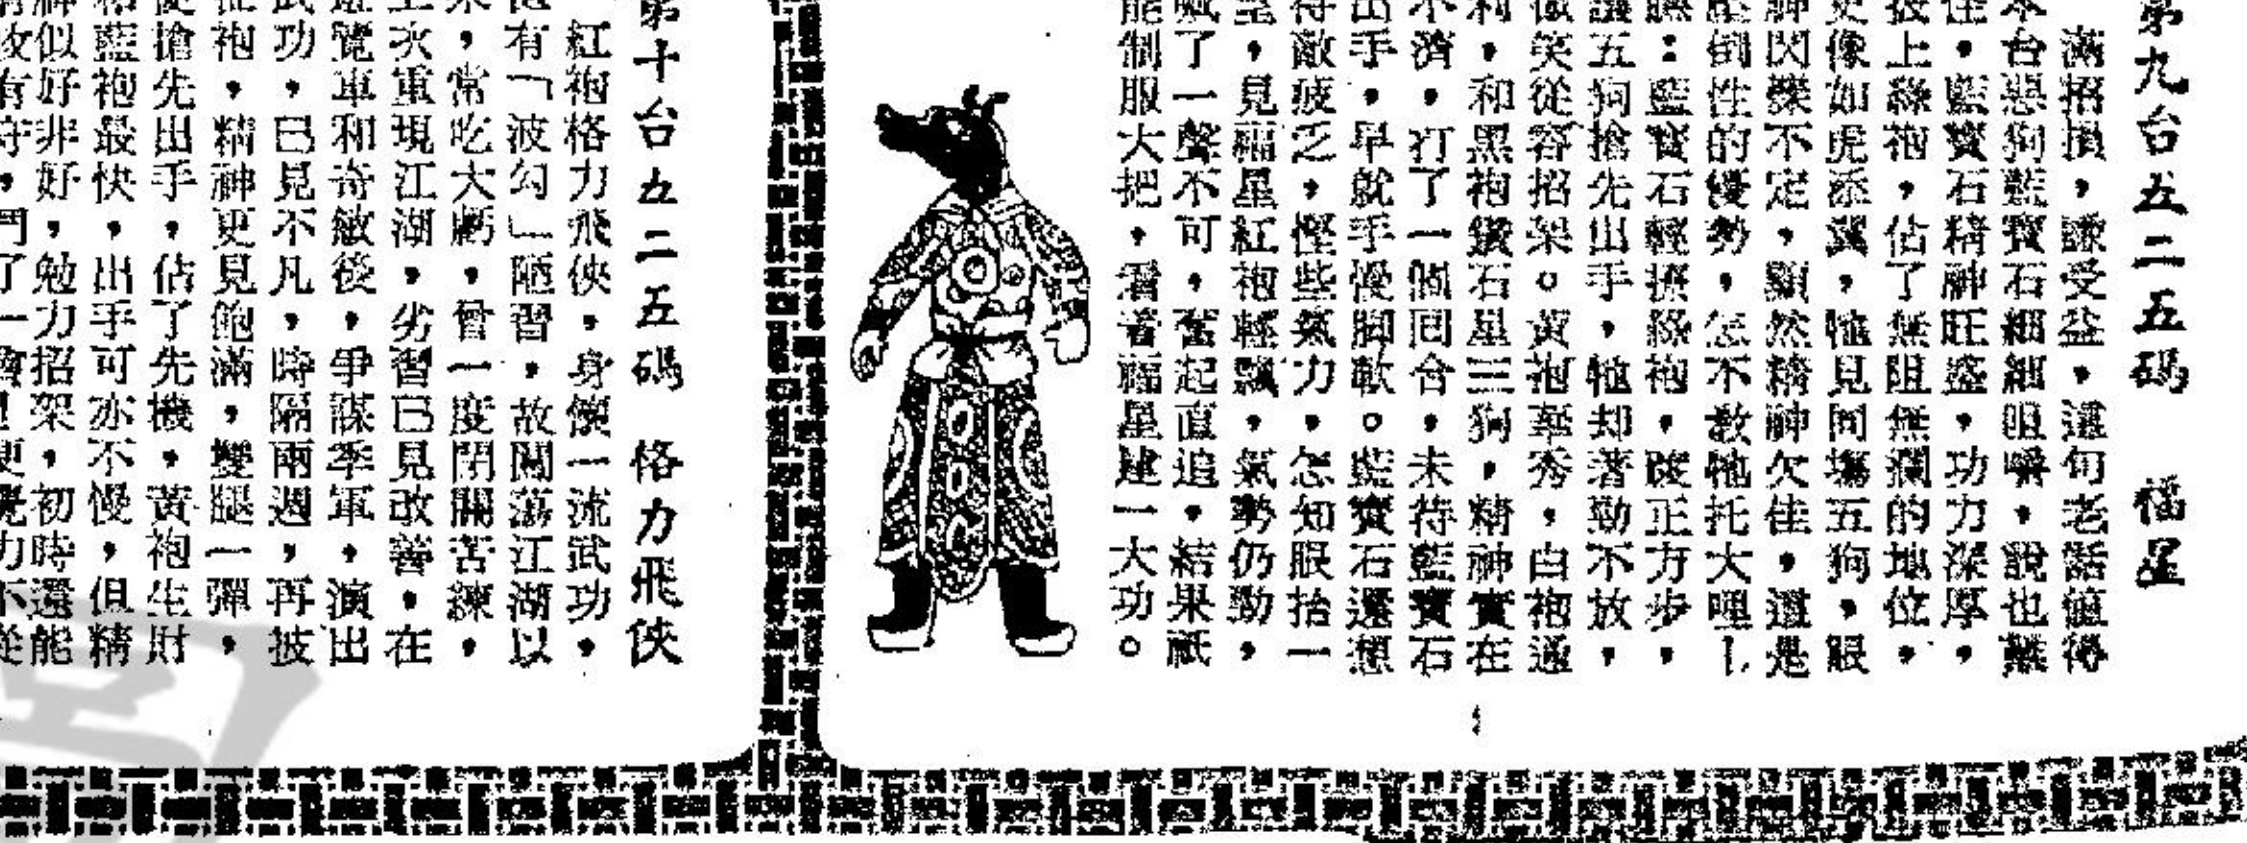 第九台五二五碼　福星
滿招損,謙受益,這句老話值得
本台惡狗藍寶石細細咀嚼,說也
佳,藍寶石精神旺盛,功力深厚,
披上綠袍,佔了無阻無攔的地位,
更像如虎添翼,牠見同塲五狗,眼
神閃爍不定,顯然精神欠佳,還是
壓倒性的優勢,怎不教牠托大哩!
瞧:藍寶石輕綠袍,踱正方步,
讓五狗搶先出手,牠却著勒不放,
微笑從容招架。黃袍秀,白袍通
利,和黑袍鑽石星三狗,精神實在
不濟,打了一個回合,未待藍寶石
出手,早就手慢脚軟。藍寶石還想
待敵疲乏,慳些氣力,怎知眼抬一
望,見福星紅袍輕飄,氣勢仍勁,
喊了一聲不可,奮起直追,結果祇
能制服大把,看着福星建一大功。
第十台五二五碼　格力飛俠
紅袍格力飛俠,身懷一流武功,
有「波勾」陋習,故闖蕩江湖以
來,常吃大虧,曾一度閉關苦練,
上次重現江湖,劣習已見改善,在
遊覽車和奇敏後,爭謀季軍,演出
武功,已見不凡,時隔兩週,再披
紅袍,精神更見飽滿,雙腿一彈,
便搶先出手,佔了先機,黃袍生財
和藍袍最快,出手可亦不慢,但精
神似好非好,勉力招架,初時還能
攻有守,鬥了一會,便覺力不從